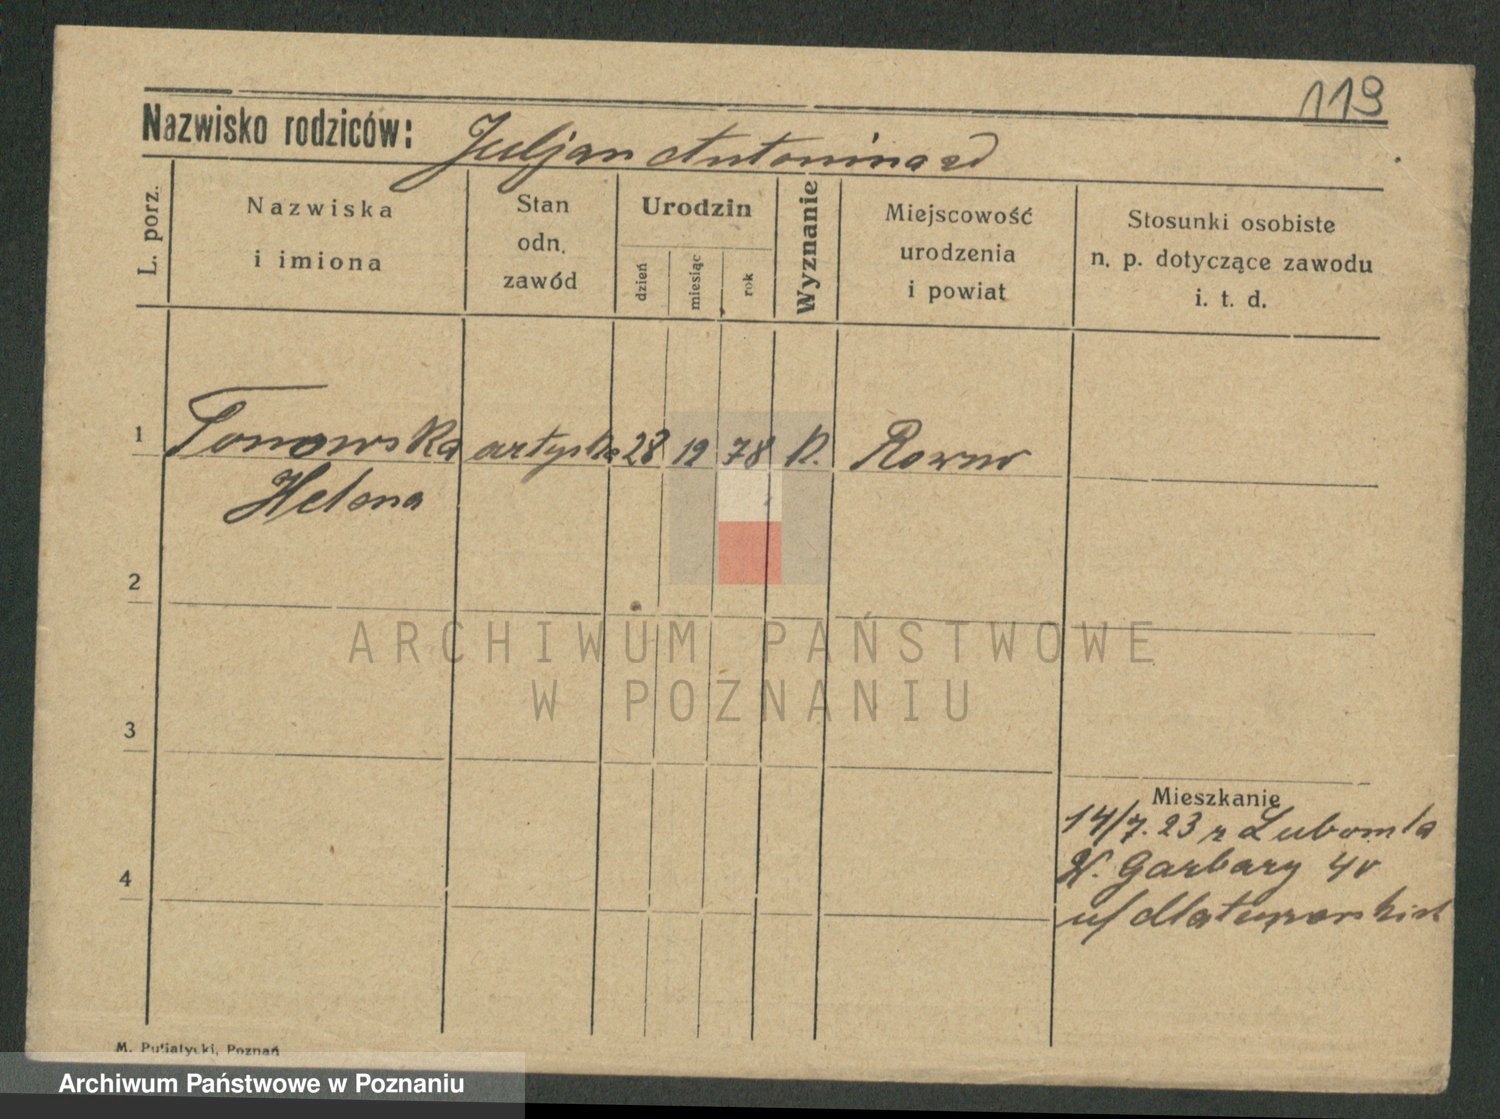 119
Nazwisko rodziców: Juljan Antonina zd
L. porz.
Nazwiska
i imiona
Stan
odn.
zawód
Urodzin
dzień
miesiąc
rok
Wyznanie
Miejscowość
urodzenia
i powiat
Stosunki osobiste
n. p. dotyczące zawodu
i. t. d.
1 Tonowska artystka 28 12 78 K. Rowno
Helena
2
3
4
Mieszkanie
14/7.23 z Lubomla
W. Garbary 40
u/
M. Putiatycki, Poznań
ARCHIWUM PAŃSTWOWE
W POZNANIU
Archiwum Państwowe w Poznaniu